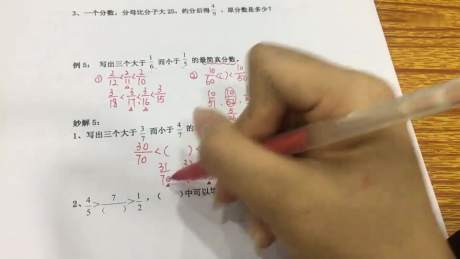 3、一个分数,分母比分子大20,约分后得4/9,原分数是多少?
例5:写出三个大于1/6而小于1/5的最简真分数。
① 2/12<2/11<2/10
② 10/60<( )<10/50
3/18<3/17<3/16<3/15
10/51
妙解5:
1、写出三个大于3/7而小于4/7的
30/70<( )<
31/70
2、4/5>7/( )>1/2,( )中可以